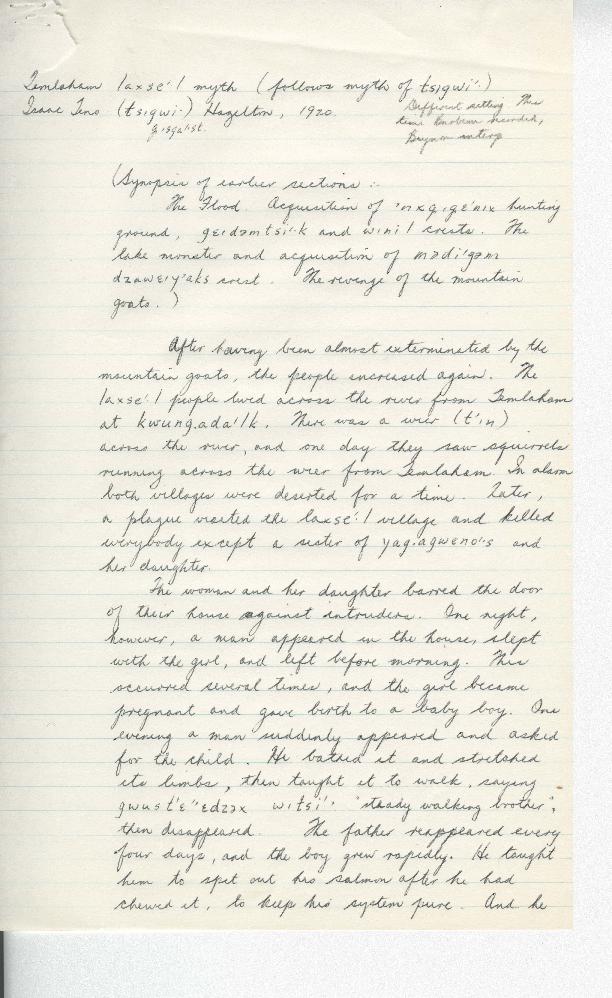 Temlaham laxse'l myth (follows myth of tsigwi'.)
Isaac Teno (tsigwi.) Hazelton, 1920.
gisga'st.
Different setting this
time Barbeau recorded,
Beynon interp
(Synopsis of earlier sections :-
The Flood. Acquisition of hunting
ground, and wini'l crests. The
lake monster and acquisition of
crest. The revenge of the mountain
goats.)
After having been almost exterminated by the
mountain goats, the people increased again. The
laxse'l people lived across the river from Temlaham
at kwung.ada'lk. There was a wier (t'in)
across the river, and one day they saw squirrels
running across the wier from Temlaham. In alarm
both villages were deserted for a time. Later,
a plague visited the laxse'l village and killed
everybody except a sister of yag.agweno's and
her daughter.
The woman and her daughter barred the door
of their house against intruders. One night,
however, a man appeared in the house, slept
with the girl, and left before morning. This
occurred several times, and the girl became
pregnant and gave birth to a baby boy. One
evening a man suddenly appeared and asked
for the child. He bathed it and stretched
its limbs, then taught it to walk, saying
"steady walking brother",
then disappeared. The father reappeared every
four days, and the boy grew rapidly. He taught
him to spit out his salmon after he had
chewed it, to keep his system pure. And he